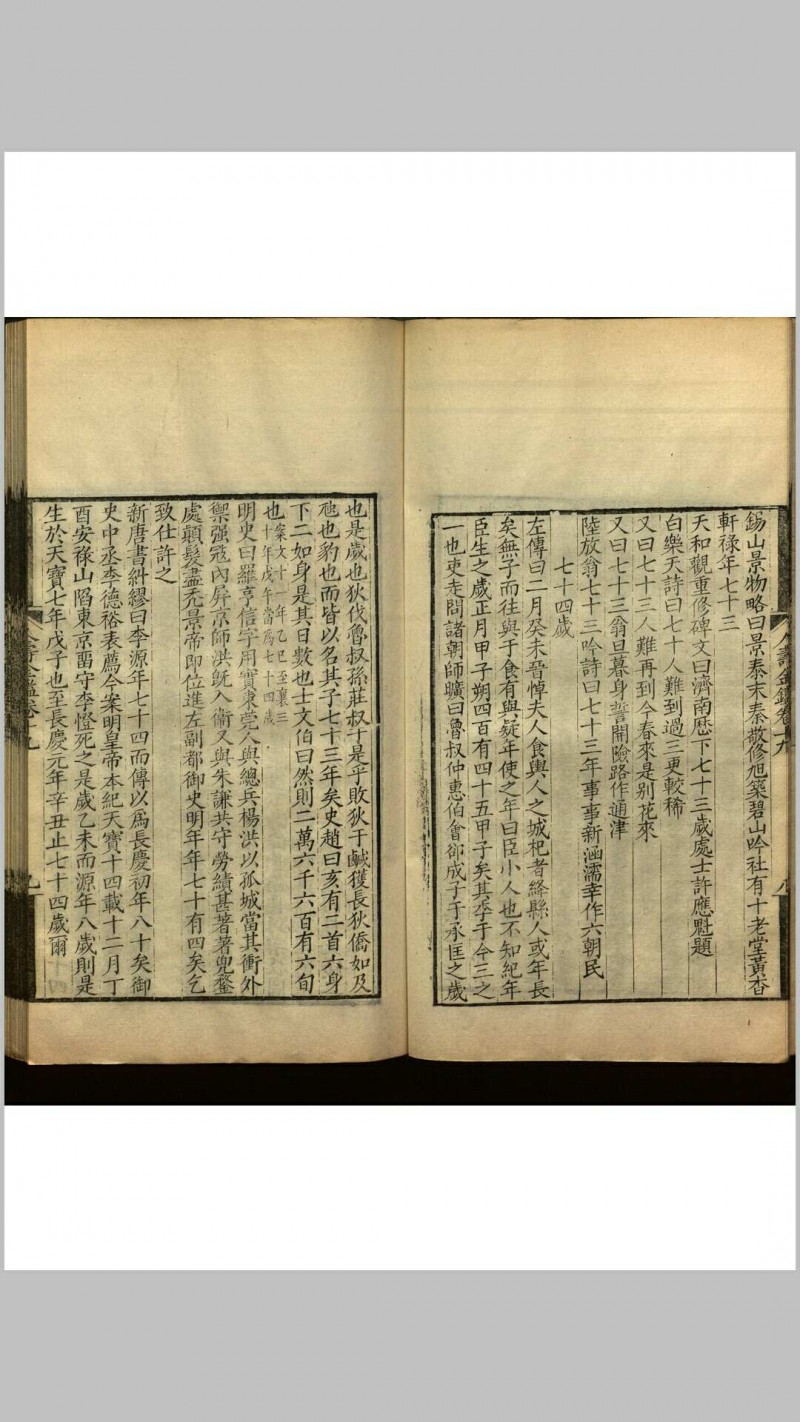 錫山景物略曰景泰末秦敬修旭築碧山吟社有十老堂黃杏
軒祿年七十三
天和觀重修碑文曰濟南歷下七十三歲處士許應魁題
白樂天詩曰七十人難到過三更較稀
又曰七十三人難再到今春來是別花來
又曰七十三翁旦暮身誓開險路作通津
陸放翁七十三吟詩曰七十三年事事新涵濡幸作六朝民
七十四歲
左傳曰二月癸未晉悼夫人食輿人之城杞者絳縣人或年長
矣無子而往與于食有與疑年使之年曰臣小人也不知紀年
臣生之歲正月甲子朔四百有四十五甲子矣其季于今三之
一也吏走問諸朝師曠曰魯叔仲惠伯會郤成子于承匡之歲
也是歲也狄伐魯叔孫莊叔于是乎敗狄于鹹獲長狄僑如及
虺也豹也而皆以名其子七十三年矣史趙曰亥有二首六身
下二如身是其日數也士文伯曰然則二萬六千六百有六旬
也案文十一年乙巳至襄三
十年戊午當為七十四歲
明史曰羅亨信字用實東莞人與總兵楊洪以孤城當其衝外
禦强寇內屏京師洪旣入衞又與朱謙共守勞績甚著著兜鍪
處顛髮盡禿景帝即位進左副都御史明年年七十有四矣乞
致仕許之
新唐書糾繆曰李源年七十四而傳以為長慶初年八十矣御
史中丞李德裕表薦今案明皇帝本紀天寶十四載十二月丁
酉安祿山陷東京畱守李憕死之是歲乙未而源年八歲則是
生於天寶七年戊子也至長慶元年辛丑止七十四歲爾
人壽金鑑卷十九
八
九